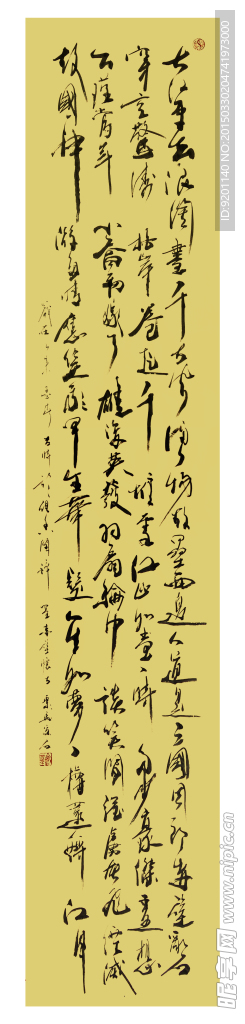 大江东去浪淘尽千古风流人物故垒西边人道是三国周郎赤壁乱石
穿空惊涛拍岸卷起千堆雪江山如画一时多少豪杰遥想
公瑾当年小乔初嫁了雄姿英发羽扇纶巾谈笑间强虏灰飞烟灭
故國神游多情应笑我早生华发人生如梦一樽还酹江月
ID:9201140 NO:20150330204741973000
昵享网 www.nipic.cn